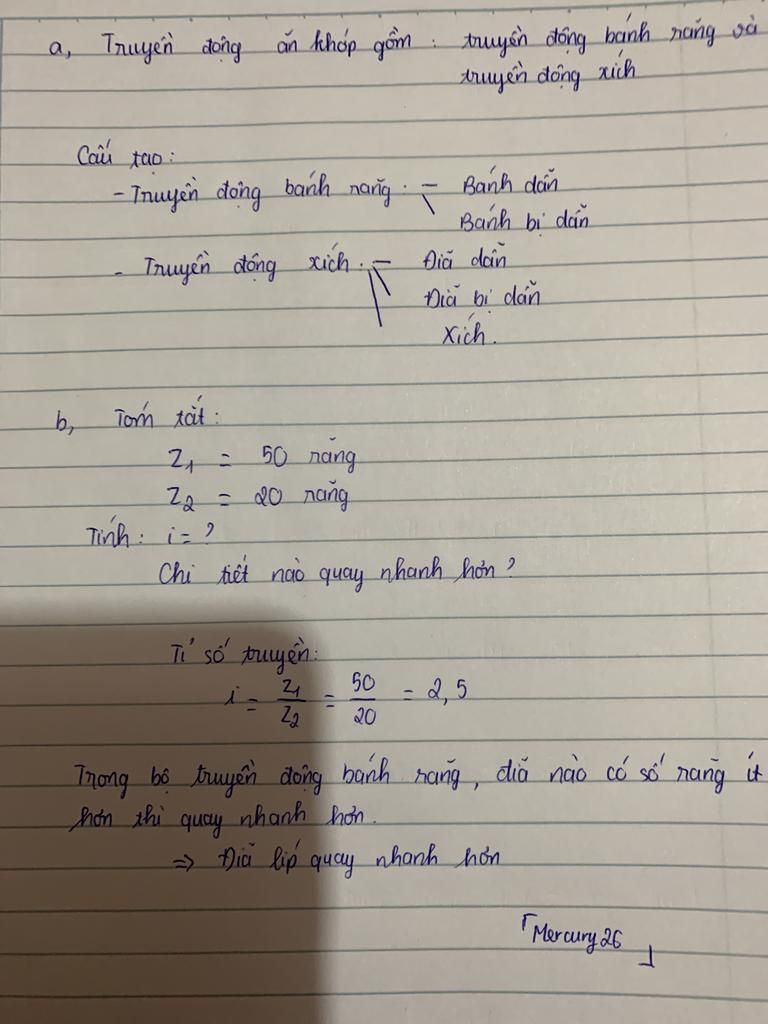 a, Truyền động ăn khớp gồm : truyền động bánh răng và
truyền động xích
Cấu tạo :
- Truyền động bánh răng . - Bánh dẫn
\ Bánh bị dẫn
- Truyền động xích . - Đĩa dẫn
\ Đĩa bị dẫn
\ Xích .
b, Tóm tắt :
Z1 = 50 răng
Z2 = 20 răng
Tính : i = ?
Chi tiết nào quay nhanh hơn ?
Tỉ số truyền :
i = Z1/Z2 = 50/20 = 2,5
Trong bộ truyền động bánh răng , đĩa nào có số răng ít
hơn thì quay nhanh hơn .
=> Đĩa líp quay nhanh hơn
「Mercury26」